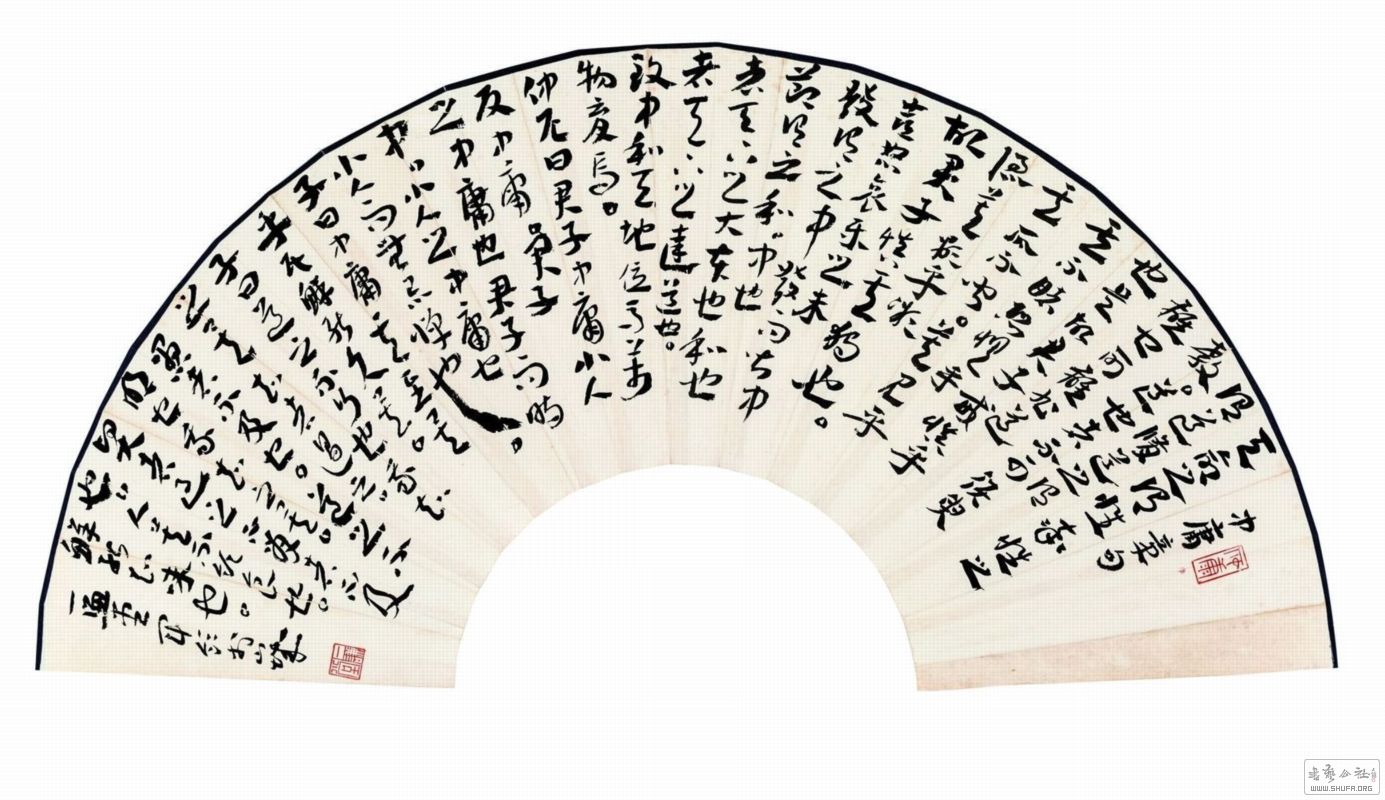 中庸章句
天命之谓性率性之
谓道修道之谓
教道也者不可须臾
離也可離非道
也是故君子戒慎乎
其所不睹恐惧乎
其所不闻。莫见乎
隐莫显乎微
故君子慎其独也。
喜怒哀乐之未
發谓之中發而皆中
节谓之和中也
者天下之大本也和也
者天下之達道也。
致中和天地位焉萬
物育焉。
仲尼曰君子中庸小人
反中庸君子
之中庸也君子而时
中小人之中庸也
小人而無忌惮也。
子曰中庸其至矣
乎民鲜能久矣。
子曰道之不行也我知
之矣知者過之
愚者不及也。道之不
明也我知之矣
賢者過之不肖者不及
也人莫不飲食也。
鲜能知味也。
WWW.SHUFA.ORG